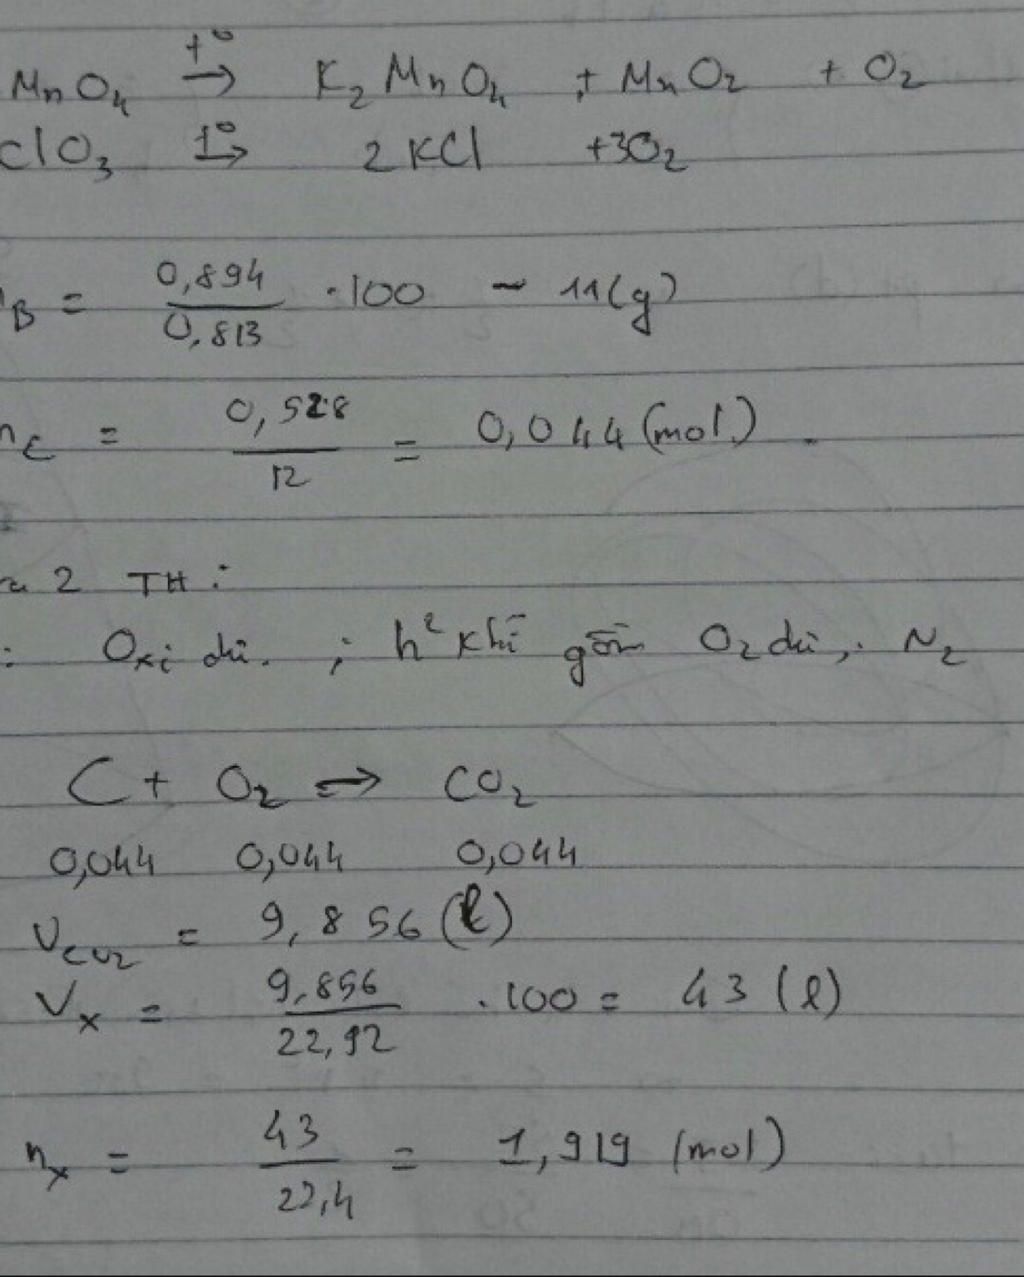 MnO4 t° → K2MnO4 + MnO2 + O2
ClO3 t° → 2KCl +3O2
B = 0,894 / 0,813 .100 ~ 11(g)
nC = 0,528 / 12 = 0,044 (mol)
2 TH:
: Oxi dư. ; h² khí gồm O2 dư, N2
C + O2 → CO2
0,044 0,044 0,044
VCO2 = 9,856 (l)
Vx = 9,856 / 22,92 .100 = 43 (l)
nx = 43 / 22,4 = 1,919 (mol)